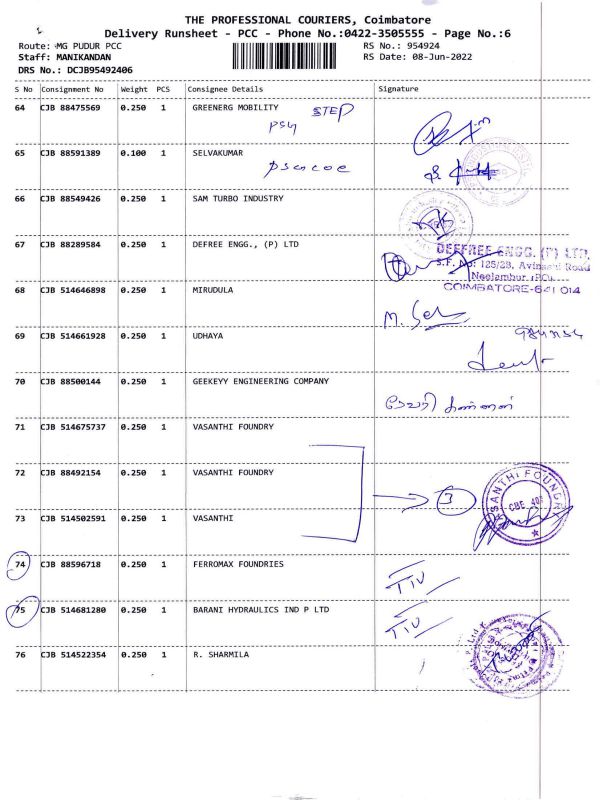 THE PROFESSIONAL COURIERS, Coimbatore
Delivery Runsheet - PCC - Phone No.:0422-3505555 - Page No.:6
Route: MG PUDUR PCC RS No.: 954924
Staff: MANIKANDAN RS Date: 08-Jun-2022
DRS No.: DCJB95492406
S No Consignment No Weight PCS Consignee Details Signature
64 CJB 88475569 0.250 1 GREENERG MOBILITY STEP
PSG
65 CJB 88591389 0.100 1 SELVAKUMAR
66 CJB 88549426 0.250 1 SAM TURBO INDUSTRY
67 CJB 88289584 0.250 1 DEFREE ENGG., (P) LTD
DEFFREE ENGG. (P) LTD.
S.F. No: 125/2B, Avinashi Road
Neelambur (PO)
COIMBATORE-641 014
68 CJB 514646898 0.250 1 MIRUDULA
69 CJB 514661928 0.250 1 UDHAYA
70 CJB 88500144 0.250 1 GEEKEYY ENGINEERING COMPANY
71 CJB 514675737 0.250 1 VASANTHI FOUNDRY
72 CJB 88492154 0.250 1 VASANTHI FOUNDRY
3
73 CJB 514502591 0.250 1 VASANTHI
74 CJB 88596718 0.250 1 FERROMAX FOUNDRIES
75 CJB 514681280 0.250 1 BARANI HYDRAULICS IND P LTD
76 CJB 514522354 0.250 1 R. SHARMILA